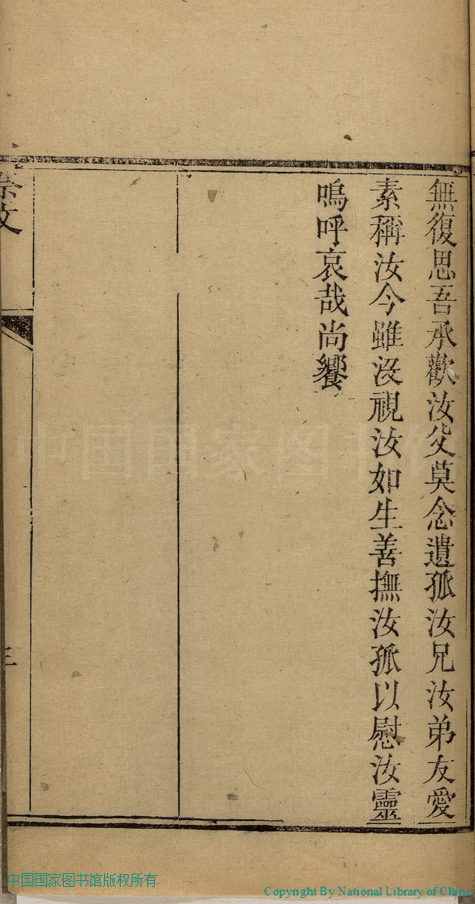 無復思吾承歡汝父莫念遺孤汝兄汝弟友愛
素稱汝今雖沒視汝如生善撫汝孤以慰汝靈
嗚呼哀哉尚饗
祭文
三
中国国家图书馆
中国国家图书馆版权所有
Copyright By National Library of China